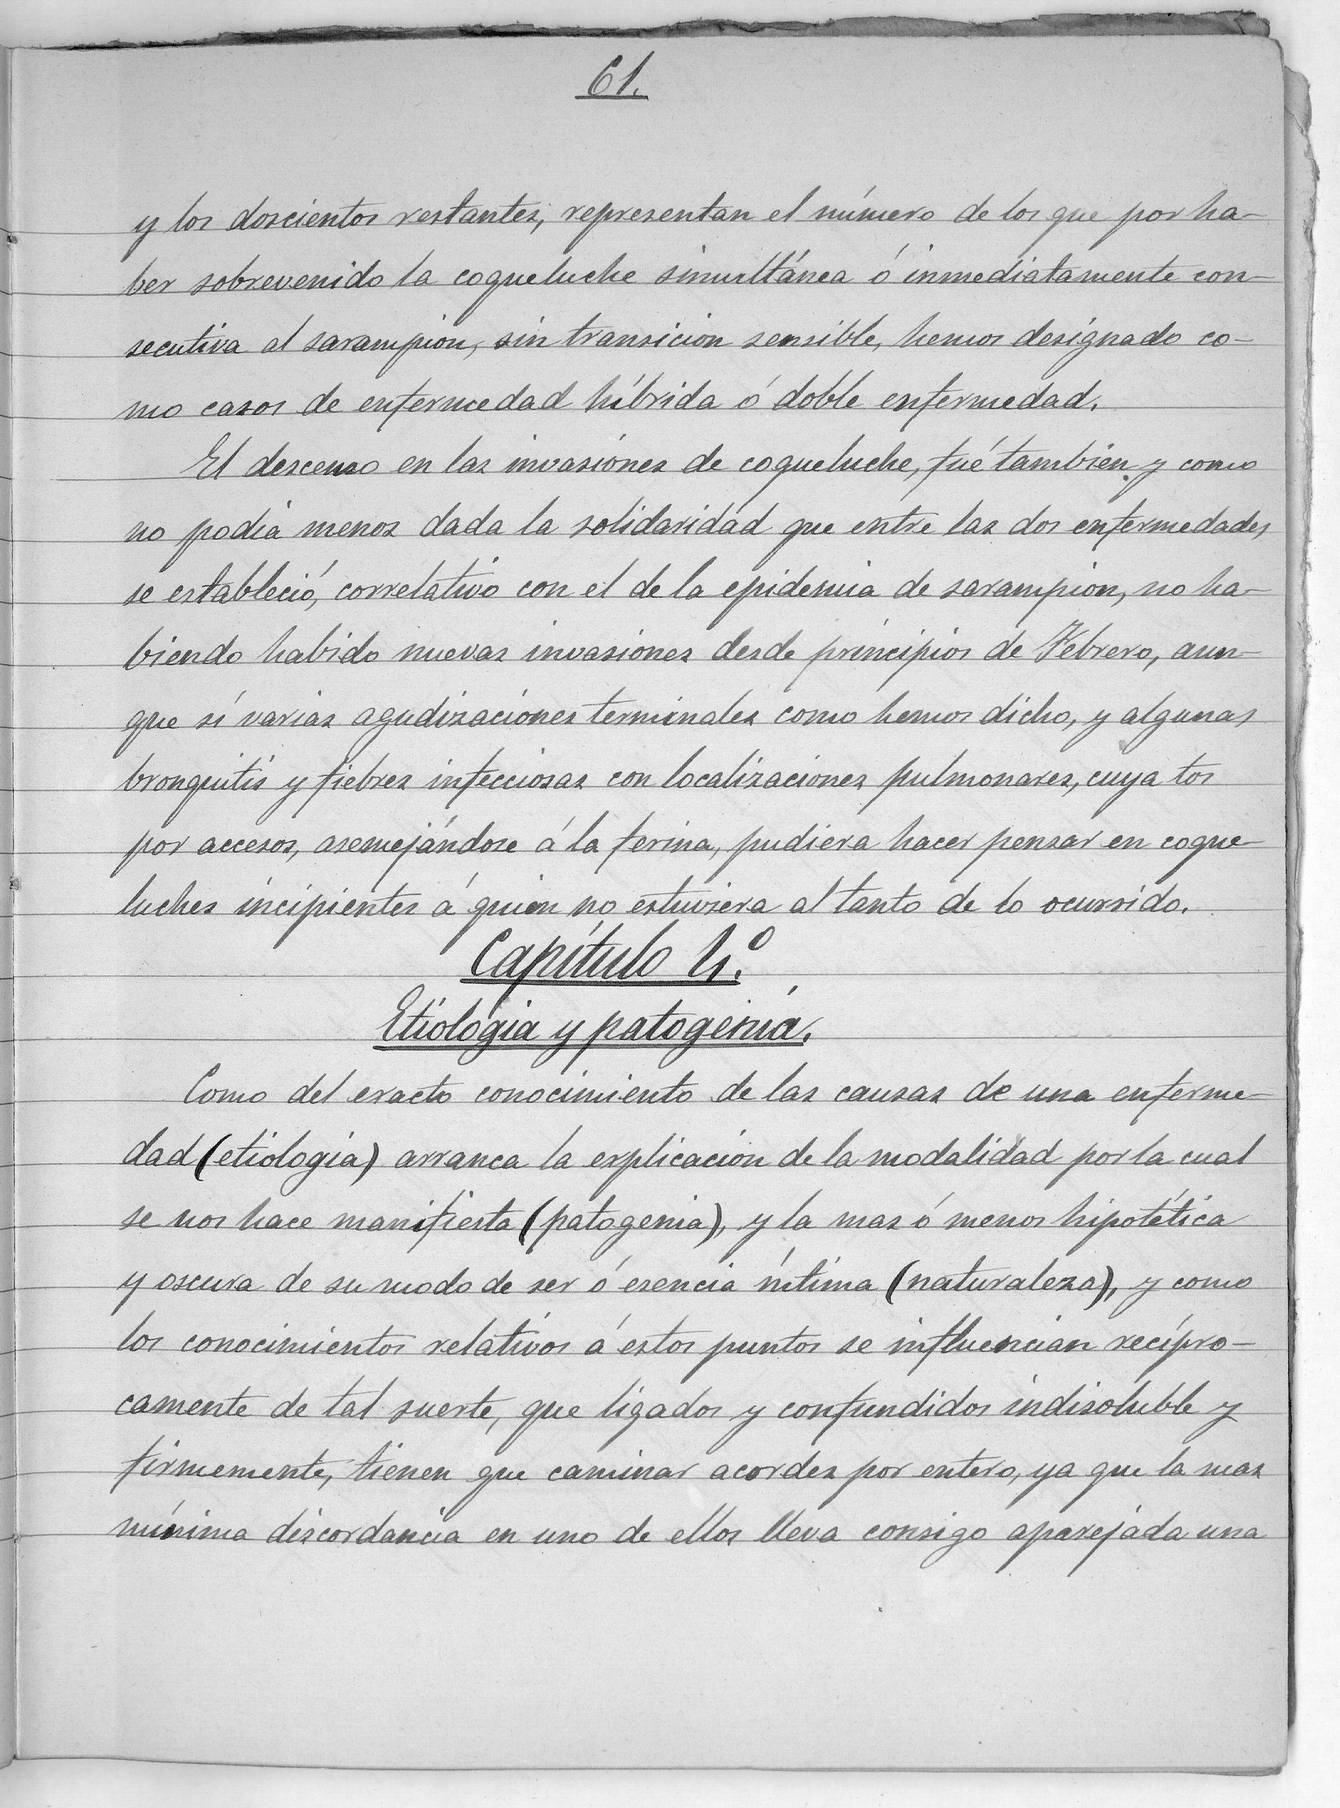 61.
y los doscientos restantes, representan el número de los que por ha-
ber sobrevenido la coqueluche simultánea ó inmediatamente con-
secutiva al sarampion, sin transicion sensible, hemos designado co-
mo casos de enfermedad híbrida ó doble enfermedad.
El descenso en las invasiónes de coqueluche, fué también y como
no podía menos dada la solidaridad que entre las dos enfermedades
se estableció, correlativo con el de la epidemia de sarampion, no ha-
biendo habido nuevas invasiones desde principios de Febrero, aun-
que sí varias agudizaciónes terminales como hemos dicho, y algunas
bronquitis y fiebres infecciosas con localizaciones pulmonares, cuya tos
por accesos, asemejándose á la ferina, pudiera hacer pensar en coque-
luches incipientes á quien no estuviera al tanto de lo ocurrido.
Capítulo 4.º
Etiología y patogenia.
Como del exacto conocimiento de las causas de una enferme-
dad (etiología) arranca la explicación de la modalidad por la cual
se nos hace manifiesta (patogenia), y la mas ó menos hipotética
y oscura de su modo de ser ó esencia íntima (naturaleza), y como
los conocimientos relativos á estos puntos se influencian recípro-
camente de tal suerte, que ligados y confundidos indisoluble y
firmemente, tienen que caminar acordes por entero, ya que la mas
mínima discordancia en uno de ellos lleva consigo aparejada una